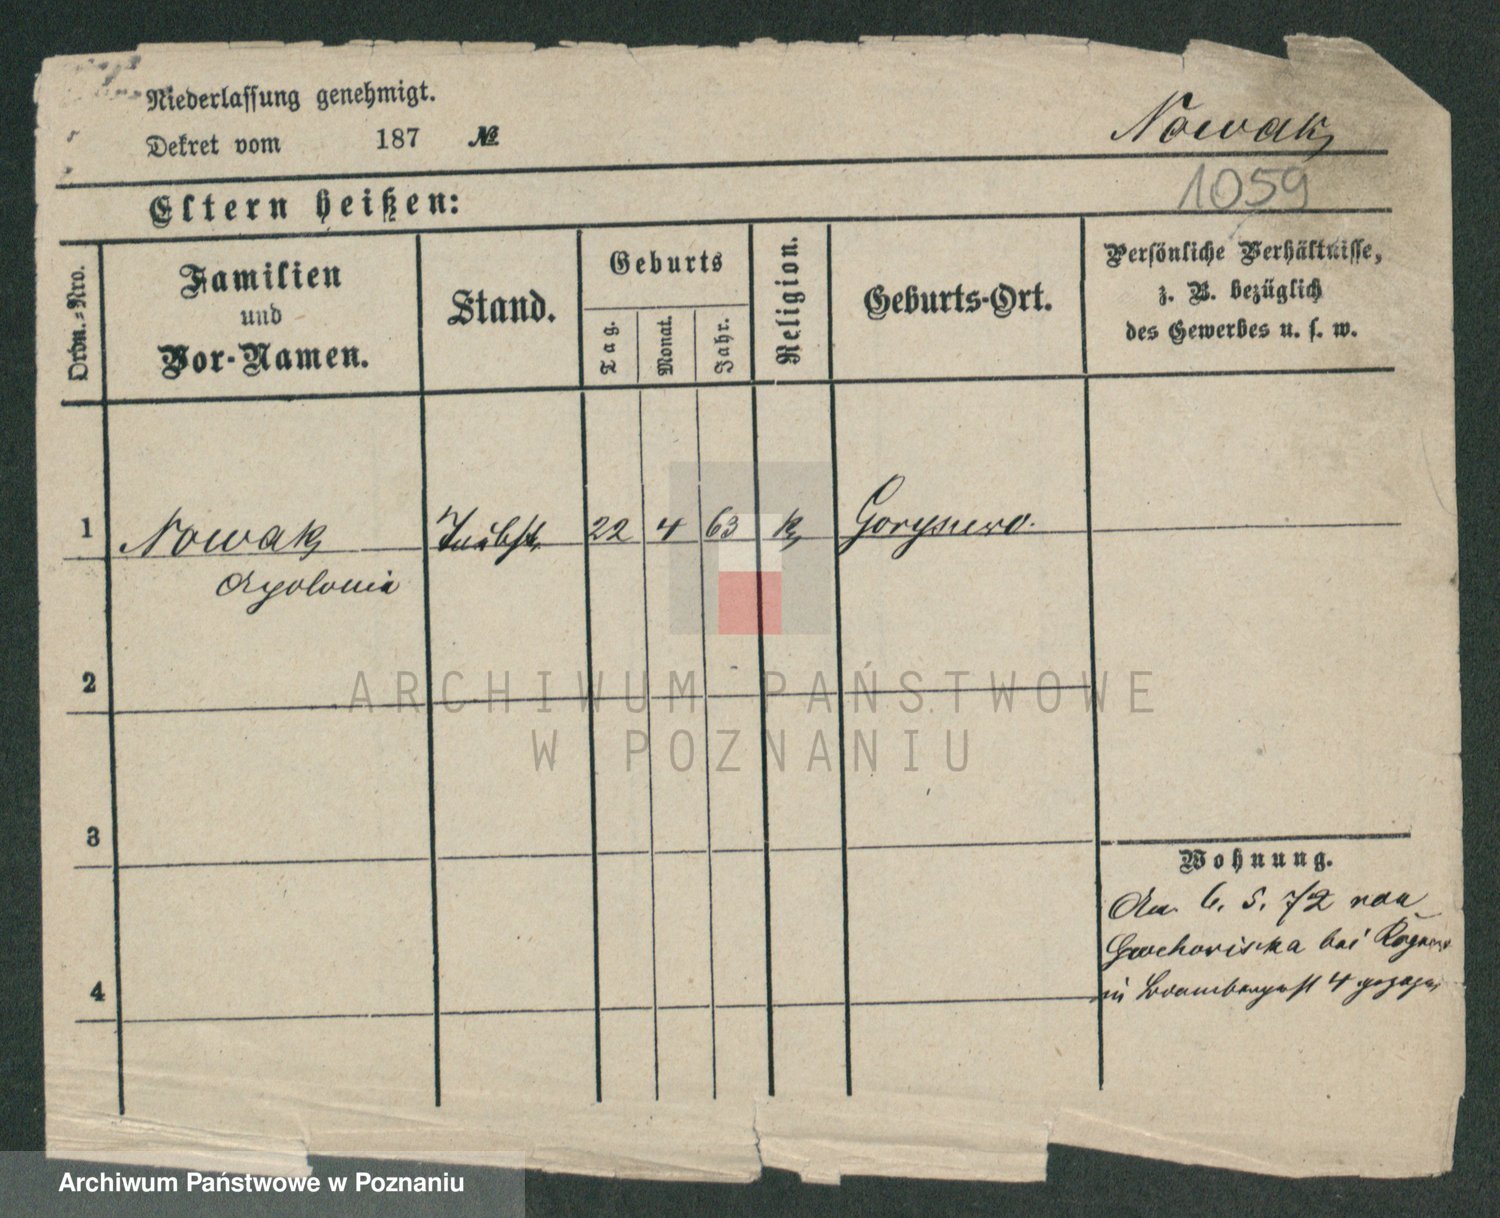 Niederlassung genehmigt.
Dekret vom 187 №
Nowak
1059
Eltern heißen:
Ordn.-Nro.
Familien
und
Vor-Namen.
Stand.
Geburts
Tag.
Monat.
Jahr.
Religion.
Geburts-Ort.
Persönliche Verhältnisse,
z. B. bezüglich
des Gewerbes u. s. w.
1 Nowak 22 4 63 k
Apolonia
2
ARCHIWUM PAŃSTWOWE
W POZNANIU
3
Wohnung.
6. 5. 72 von
bei
4
in 4
Archiwum Państwowe w Poznaniu